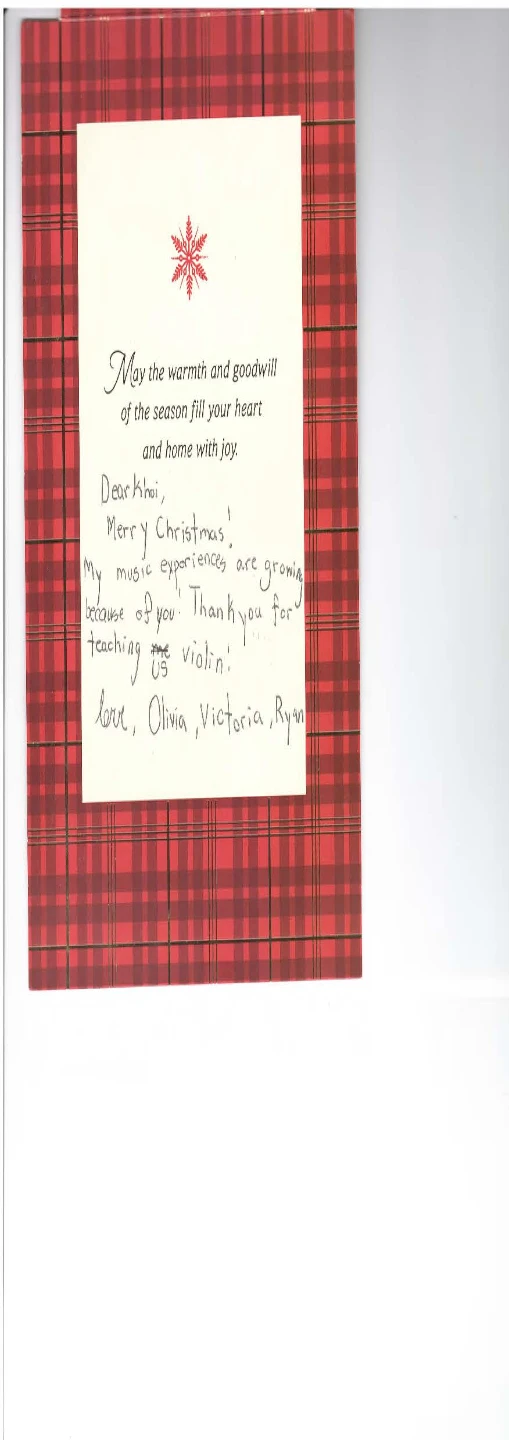 May the warmth and goodwill
of the season fill your heart
and home with joy.
Dear Khoi,
Merry Christmas!
My music experiences are growing
because of you! Thank you for
teaching me us violin!
love, Olivia, Victoria, Ryan